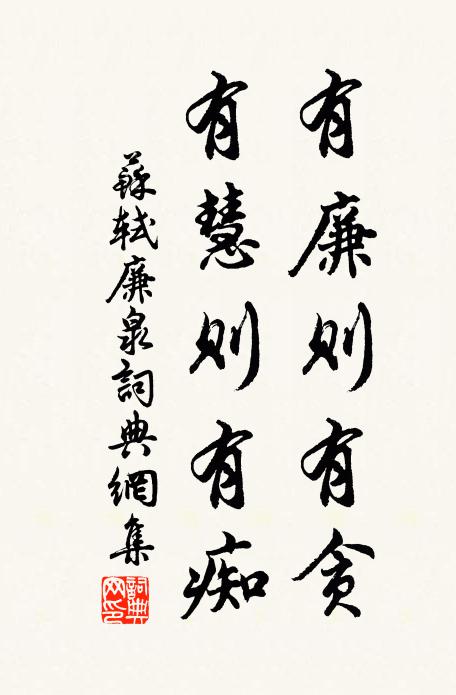 有廉则有贪
有慧则有痴
蘇軾廉泉詞典網集
詞典网印